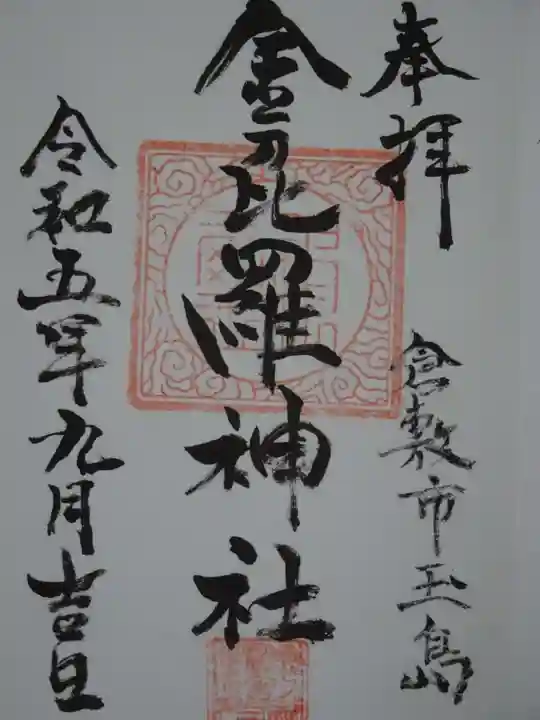 奉拝
倉敷市玉島
金刀比羅神社
令和五年九月吉日